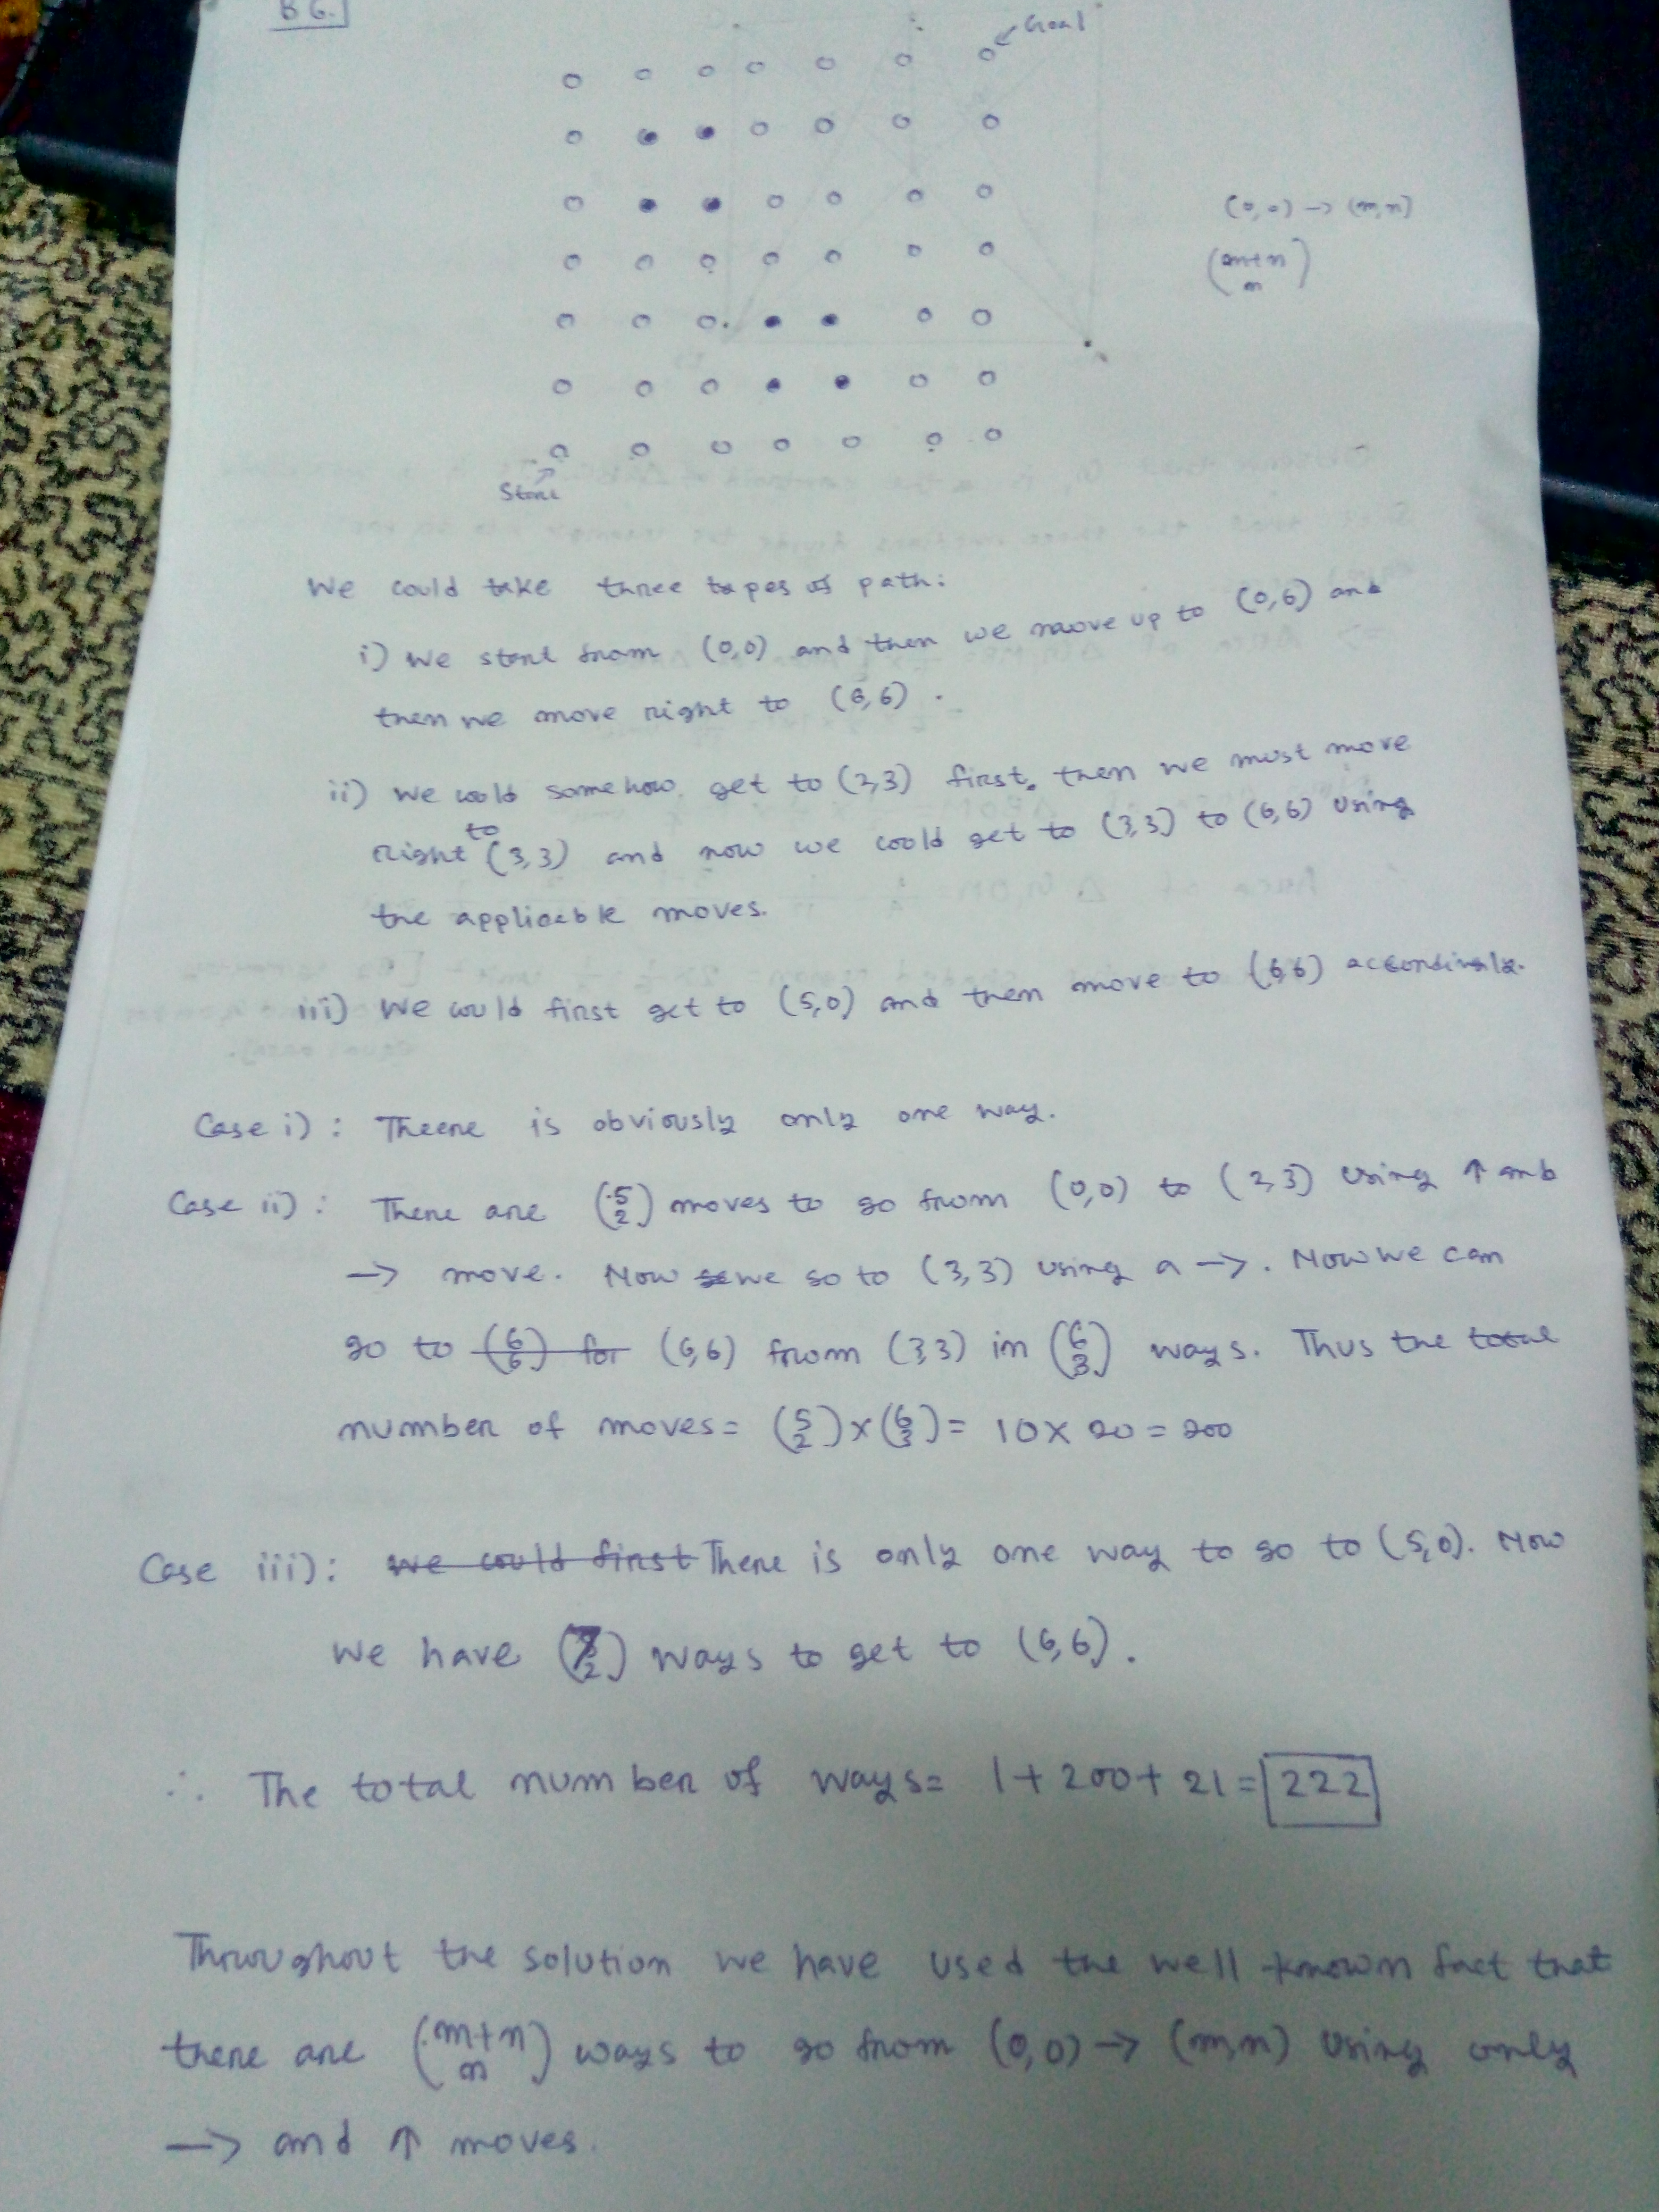 B6.
Goal
(0,0) → (m,n)
(m+n
m)
Start
We could take three types of path:
i) We start from (0,0) and then we move up to (0,6) and
then we move right to (6,6).
ii) We could somehow get to (2,3) first, then we must move
right to (3,3) and now we could get to (3,3) to (6,6) using
the applicable moves.
iii) We could first get to (5,0) and then move to (6,6) accordingly.
Case i): There is obviously only one way.
Case ii): There are (5 2) moves to go from (0,0) to (2,3) using ↑ and
→ move. Now we go to (3,3) using a →. Now we can
go to (6 6) for (6,6) from (3,3) in (6 3) ways. Thus the total
number of moves = (5 2) × (6 3) = 10 × 20 = 200
Case iii): We could first There is only one way to go to (5,0). Now
we have (7 2) ways to get to (6,6).
∴ The total number of ways = 1 + 200 + 21 = 222
Throughout the solution we have used the well known fact that
there are (m+n m) ways to go from (0,0) → (m,n) using only
→ and ↑ moves.